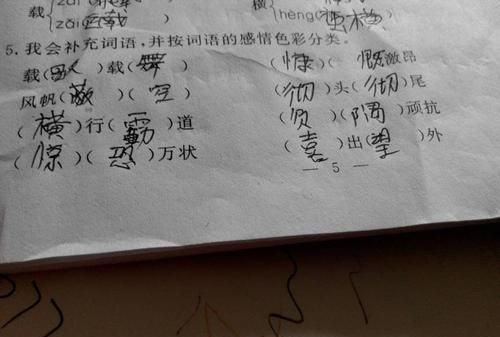 载{zǎi
zài(载) 横{hèng(横)
5.我会补充词语,并按词语的感情色彩分类。
载(歌)载(舞) (慷)(慨)激昂
风帆(蔽)(空) (彻)头(彻)尾
(横)行(霸)道 (负)(隅)顽抗
(惊)(恐)万状 (喜)出(望)外
— 5 —